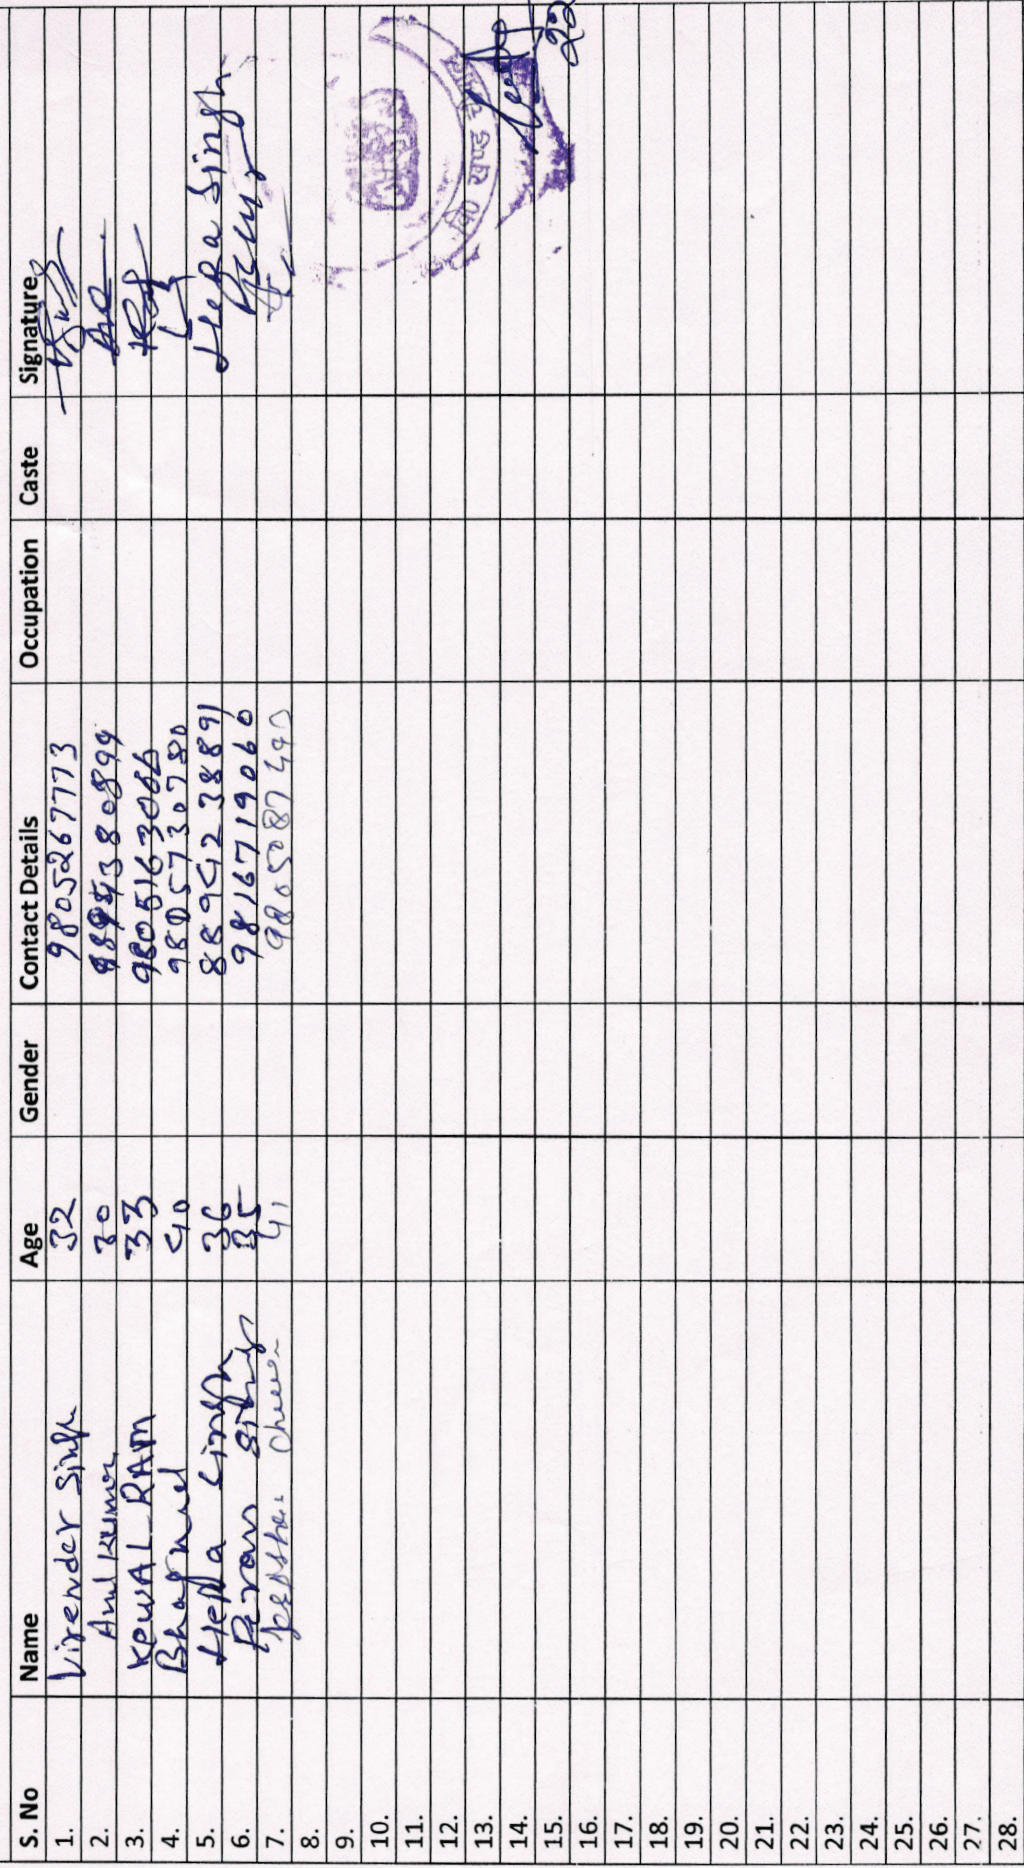 S. No Name Age Gender Contact Details Occupation Caste Signature
1. Virender Singh 32 9805267773
2. Anil Kumar 30
3. KEWAL RAM 33 9805163066
4. 40 9805730780
5. Hepa Singh 36 8894238891 Hepa Singh
6. Singh 35 9816719060
7. 41
8.
9.
10.
11.
12.
13.
14.
15.
16.
17.
18.
19.
20.
21.
22.
23.
24.
25.
26.
27.
28.
खण्ड